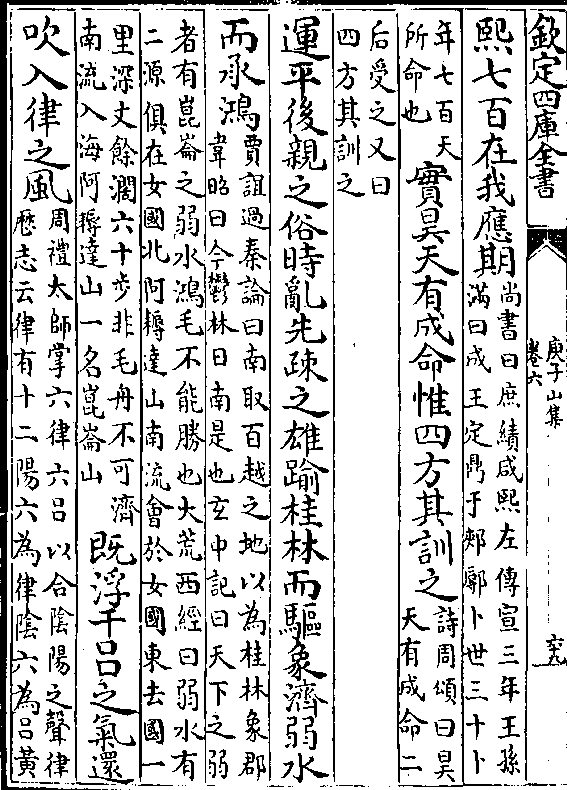 欽定四庫全書
庚子山集
卷六
六九
熙七百在我應期尚書曰庶績咸熙左傳宣三年王孫
滿曰成王定鼎于郟鄏卜世三十卜
年七百天
所命也實昊天有成命惟四方其訓之詩周頌曰昊
天有成命二
后受之又曰
四方其訓之
運平後親之俗時亂先疎之雄踰桂林而驅象濟弱水
而承鴻賈誼過秦論曰南取百越之地以為桂林象郡
韋昭曰今鬱林日南是也玄中記曰天下之弱
者有崑崙之弱水鴻毛不能勝也大荒西經曰弱水有
二源俱在女國北阿耨達山南流會於女國東去國一
里深丈餘濶六十步非毛舟不可濟
南流入海阿耨達山一名崑崙山既浮千呂之氣還
吹入律之風周禮太師掌六律六呂以合陰陽之聲律
歴志云律有十二陽六為律陰六為呂黃